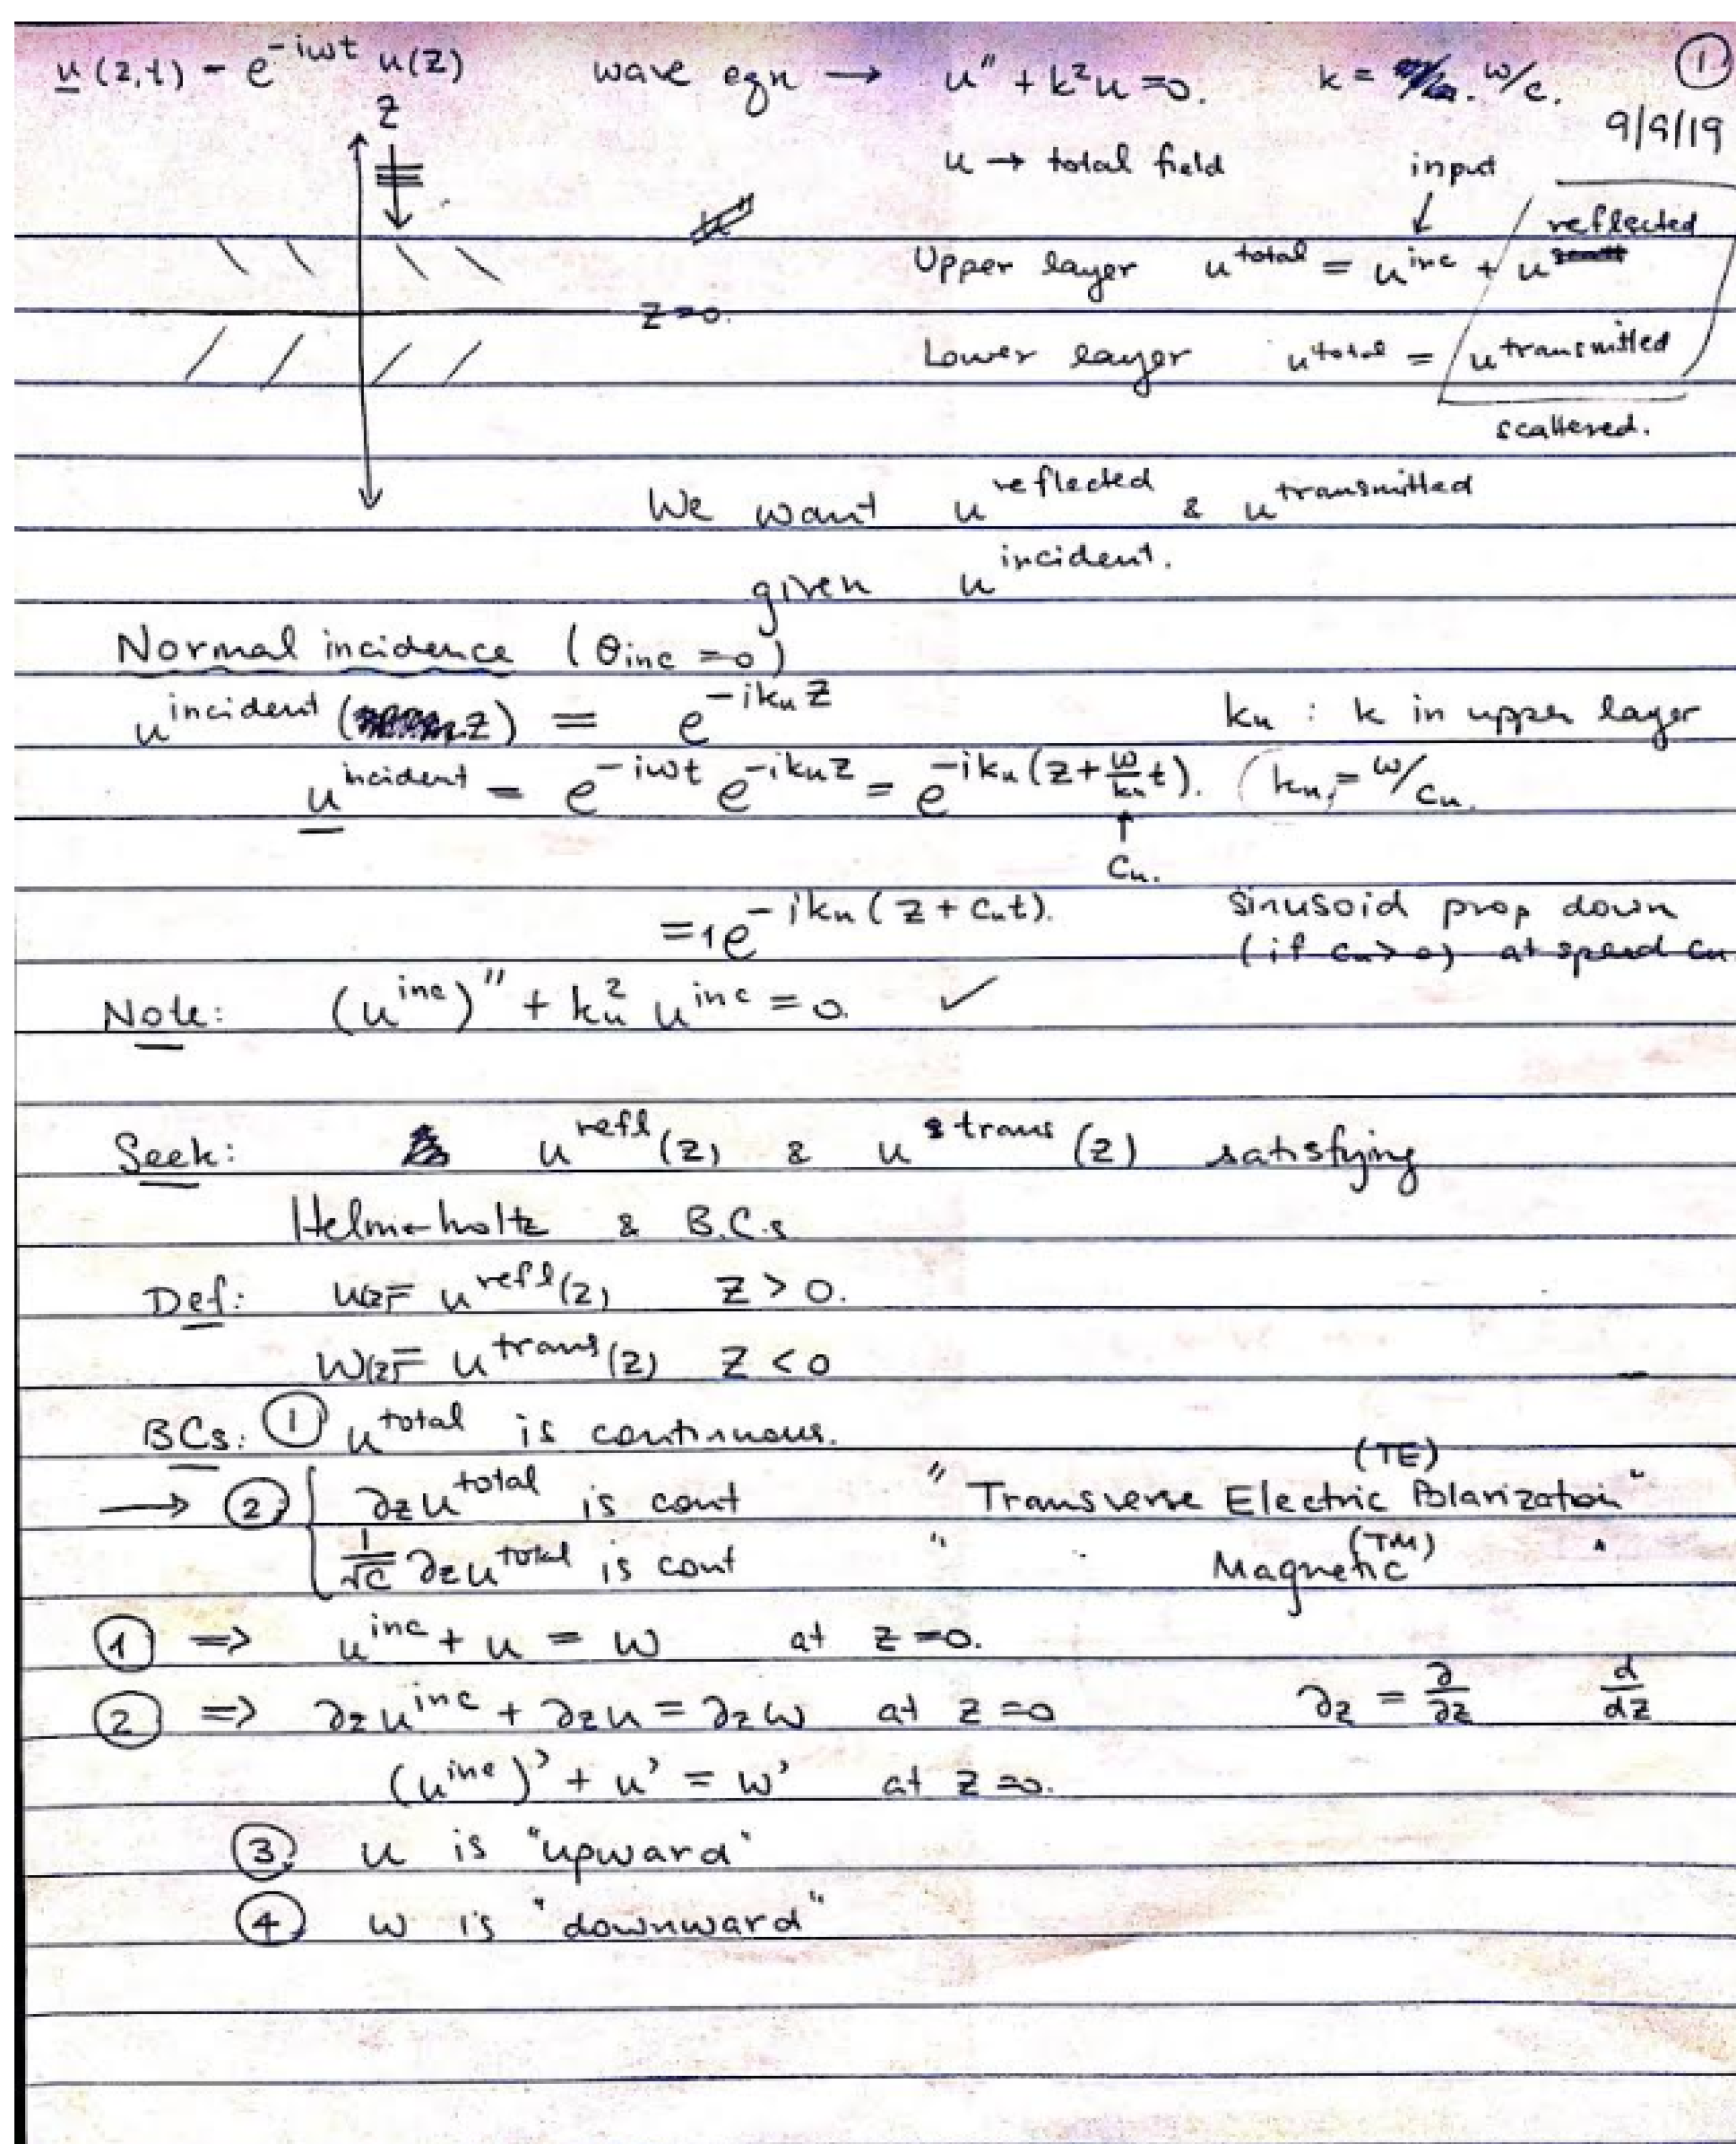 u(z,t) = e^{-iωt} u(z)   wave eqn → u'' + k²u = 0.   k = ω/c.   ①
9/9/19
z
u → total field   input
Upper layer   u^{total} = u^{inc} + u^{reflected}
z=0.
Lower layer   u^{total} = u^{transmitted}
scattered.
We want u^{reflected} & u^{transmitted}
given u^{incident}.
Normal incidence (θinc = 0)
u^{incident}(z) = e^{-ik_u z}   k_u : k in upper layer
u^{incident} = e^{-iωt} e^{-ik_u z} = e^{-ik_u(z + ω/k_u t)}. (k_u = ω/c_u.
↑
c_u.
= 1e^{-ik_u(z + c_u t)}.   sinusoid prop down
(if c_u > 0) at speed c_u
Note: (u^{inc})'' + k_u² u^{inc} = 0. ✓
Seek: u^{refl}(z) & u^{trans}(z) satisfying
Helm-holtz & B.C.s
Def: u(z) = u^{refl}(z)   z > 0.
w(z) = u^{trans}(z)   z < 0
BCs: ① u^{total} is continuous.
(TE)
→ ② { ∂z u^{total} is cont   "Transverse Electric Polarization"
1/√c ∂z u^{total} is cont   " Magnetic (TM) "
① ⇒ u^{inc} + u = w   at z = 0.
② ⇒ ∂z u^{inc} + ∂z u = ∂z w   at z = 0   ∂z = ∂/∂z   d/dz
(u^{inc})' + u' = w'   at z = 0.
③ u is "upward"
④ w is "downward"